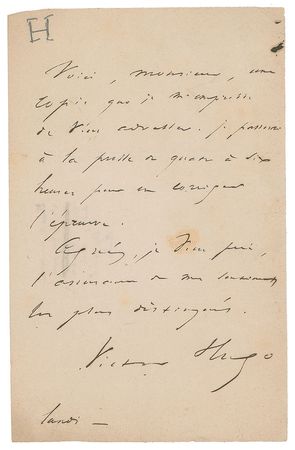 [H]
Voici, monsieur, une
copie que je m'empresse
de vous adresser. je passerai
à la presse de quatre à six
heures pour en corriger
l'épreuve.
Agréez, je vous prie,
l'assurance de mes sentiments
les plus distingués.
Victor Hugo
lundi —